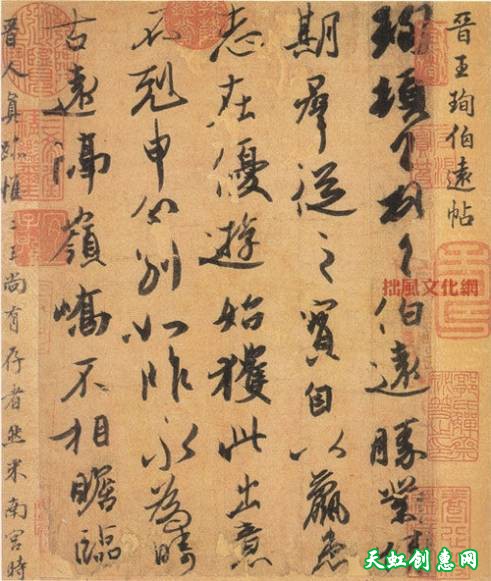 晉王珣伯遠帖
珣頓首頓首伯遠勝業情
期羣從之寶自以羸患
志在優遊始獲此出意
不剋申分別如昨永為疇
古遠隔嶺嶠不相瞻臨
晉人真跡惟二王尚有存者然米南宮時
拙風文化網
天虹创意网